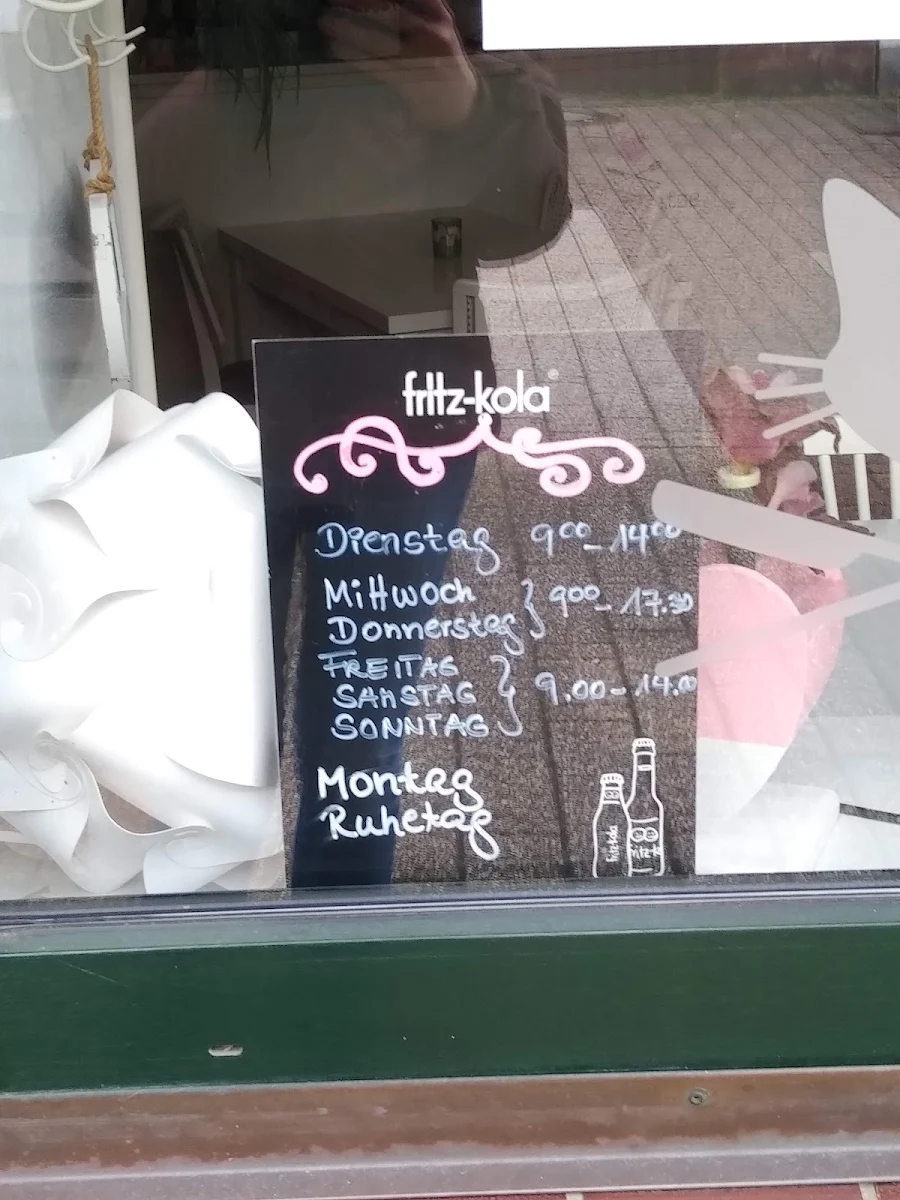 fritz-kola
Dienstag 9⁰⁰-14⁰⁰
Mittwoch
Donnerstag } 9⁰⁰-17.30
FREITAG
SAMSTAG } 9.00-14.00
SONNTAG
Montag
Ruhetag
fritz-kola
fritz-k